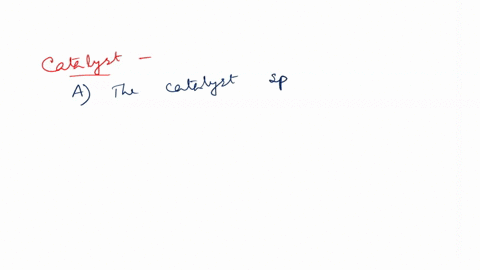 Catalyst -
A) The catalyst sp